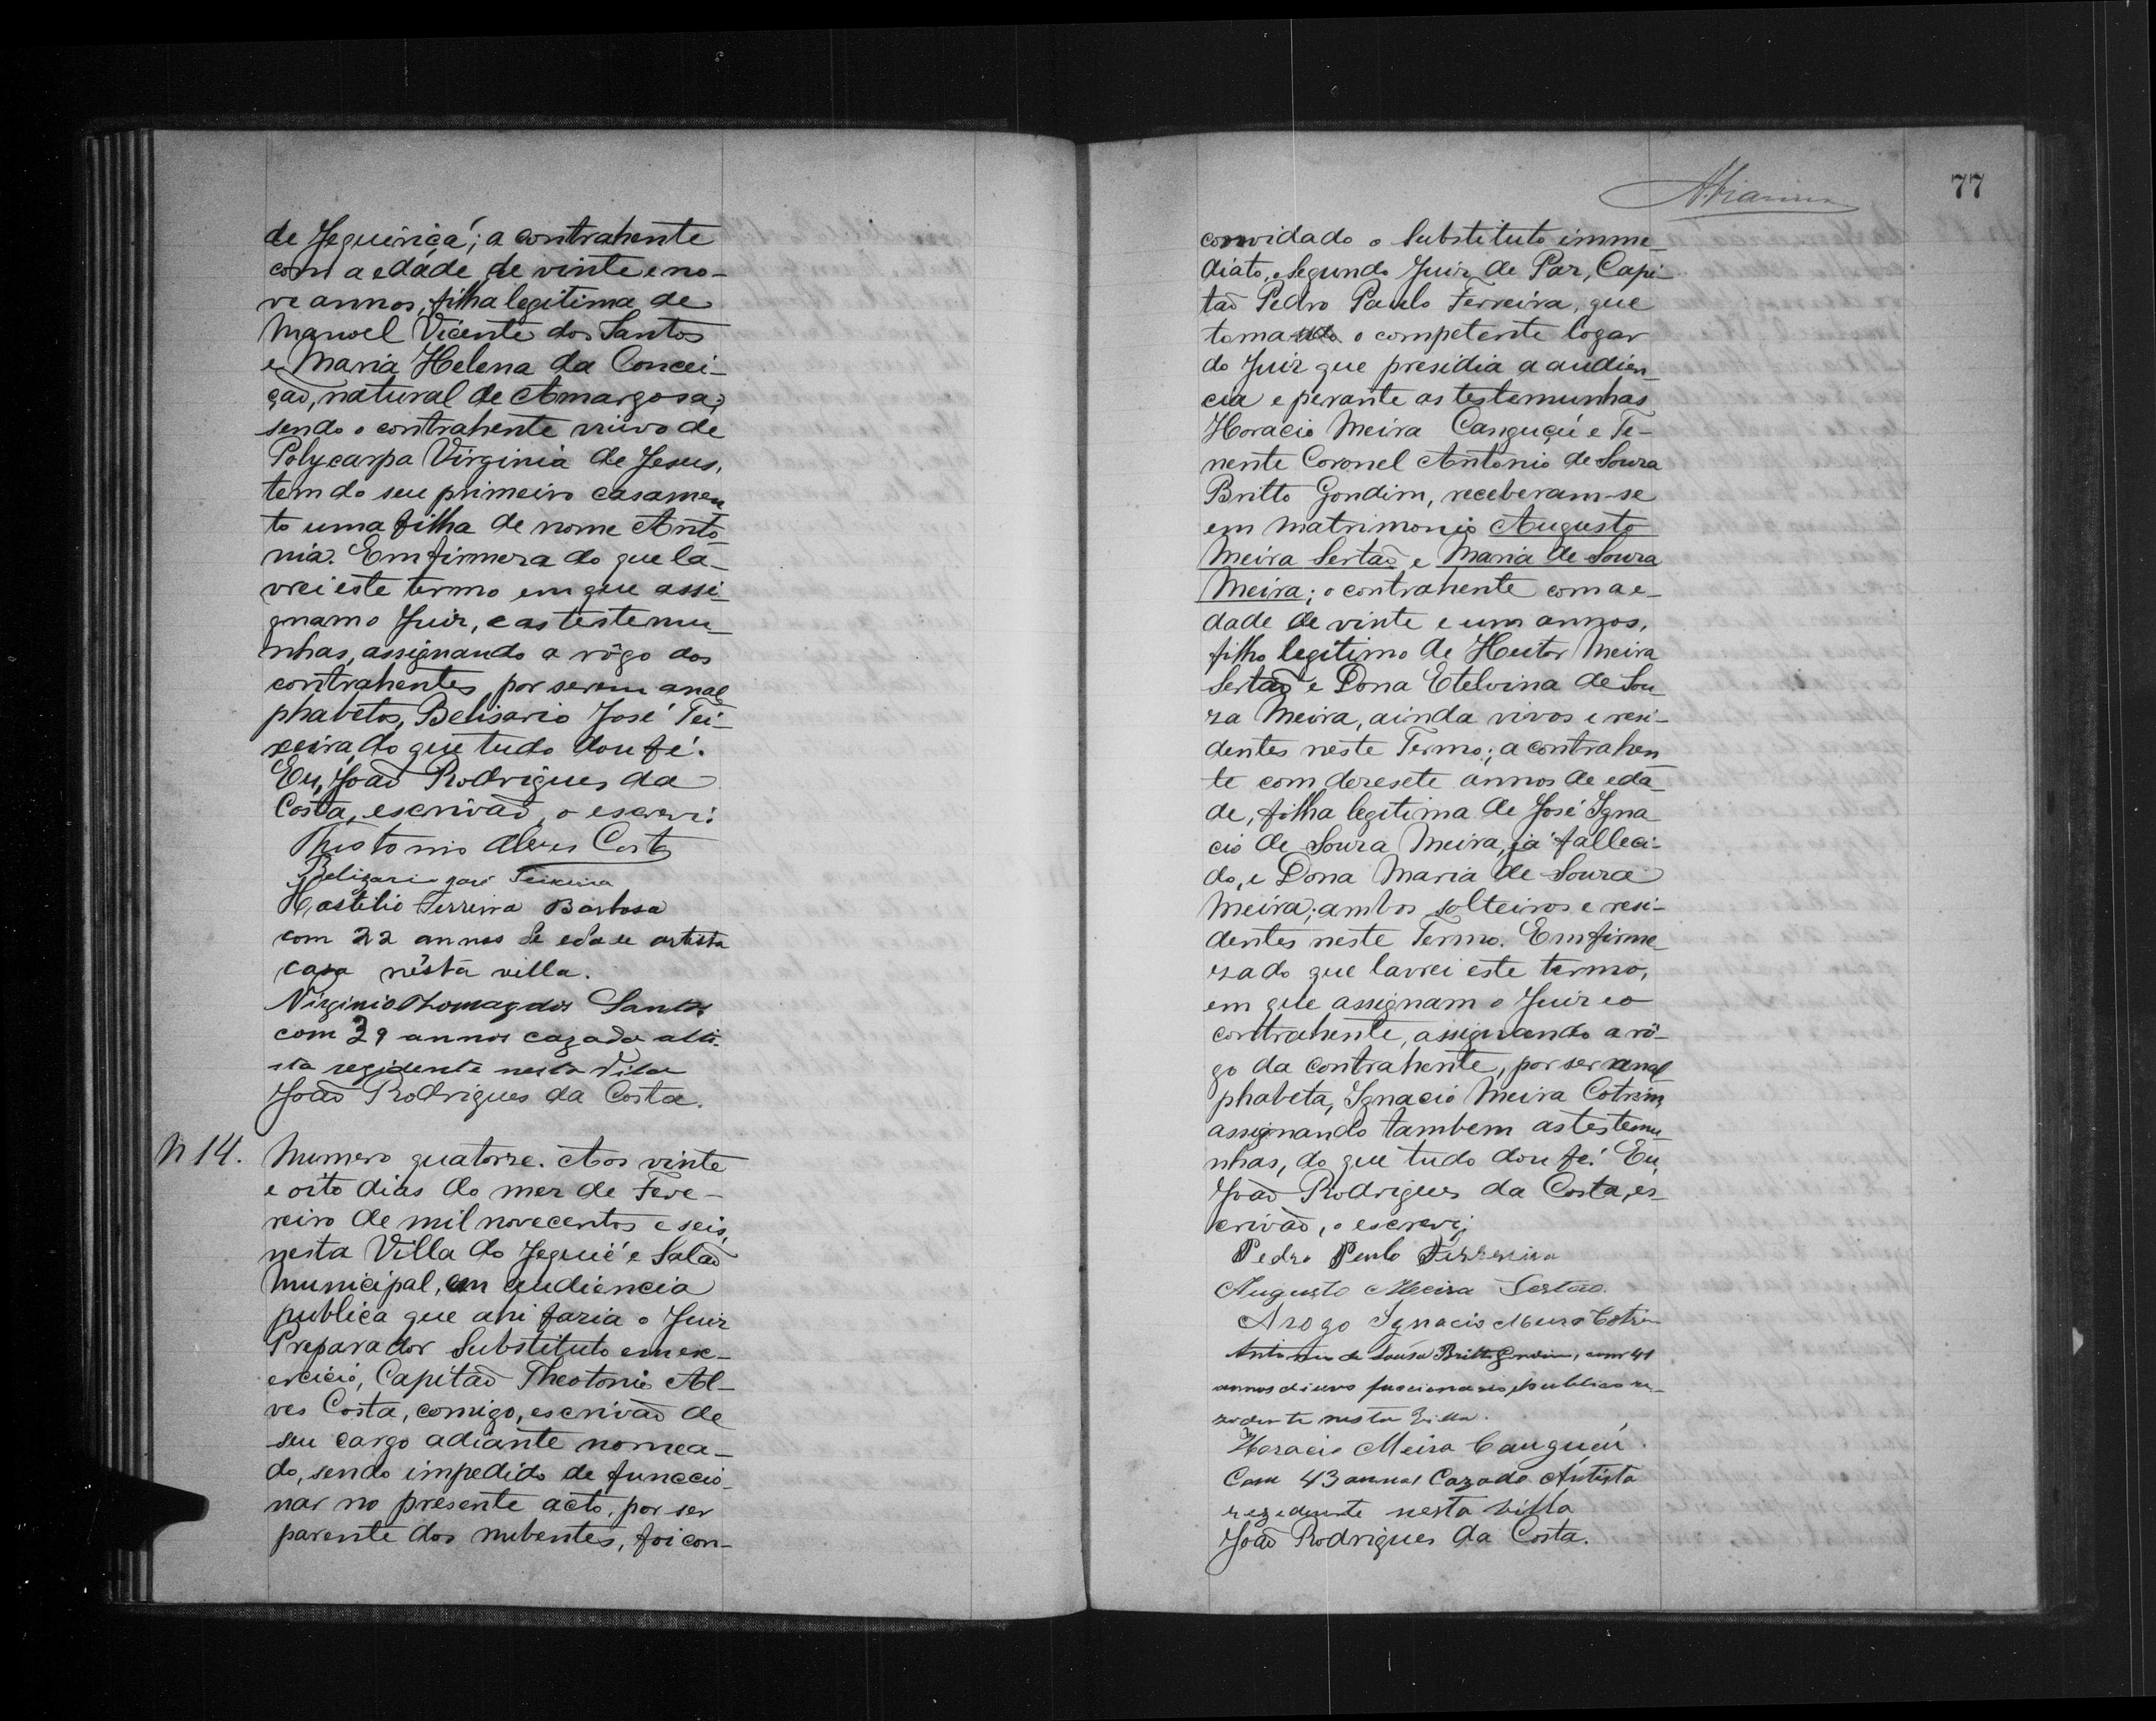 de Jequiriçá; a contrahente
com a edade de vinte e no-
ve annos, filha legitima de
Manoel Vicente dos Santos
e Maria Helena da Concei-
ção, natural de Amargosa;
sendo o contrahente viuvo de
Polycarpa Virginia de Jesus,
tem do seu primeiro casamen
to uma filha de nome Anto
nia. Em firmeza do que la-
vrei este termo em que assi-
gnam o Juiz, e as testemu-
nhas, assignando a rôgo dos
contrahentes, por serem anal
phabetos, Belisario José Tei-
xeira, do que tudo dou fé.
Eu, João Rodrigues da
Costa, escrivão, o escrevi.
Theotonio Alves Costa
Belizario José Teixeira
Castilio Ferreira Barbosa
com 22 annos de edade artista
caza nesta villa.
Virginio Thomaz dos Santos
com 39 annos cazado arti-
sta rezidente nesta Vila
João Rodrigues da Costa.
N 14.
Numero quatorze. Aos vinte
e oito dias do mez de Feve-
reiro de mil novecentos e seis,
nesta Villa do Jequié e Salão
Municipal, em audiencia
publica que ahi fazia o Juiz
Preparador Substituto em ex-
ercicio, Capitão Theotonio Al-
ves Costa, comigo, escrivão de
seu cargo adiante nomea-
do, sendo impedido de funccio-
nar no presente acto, por ser
parente dos nubentes, foi con-
77
convidado o Substituto imme-
diato, e Segundo Juiz de Paz, Capi-
tão Pedro Paulo Ferreira, que
toma o competente logar
do Juiz que presidia a audien-
cia e perante as testemunhas
Horacio Meira Canguçú e Te-
nente Coronel Antonio de Souza
Britto Gondim, receberam-se
em matrimonio Augusto
Meira Sertão e Maria de Souza
Meira; o contrahente com a e-
dade de vinte e um annos,
filho legitimo de Heitor Meira
Sertão e Dona Etelvina de Sou-
za Meira, ainda vivos e resi-
dentes neste Termo; a contrahen
te com dezesete annos de eda-
de, filha legitima de José Igna
cio de Souza Meira, já falleci-
do, e Dona Maria de Souza
Meira; ambos solteiros e resi-
dentes neste Termo. Em firme-
za do que lavrei este termo,
em que assignam o Juiz e o
contrahente, assignando a rô-
go da contrahente, por ser anal
phabeta, Ignacio Meira Cotrim,
assignando tambem as testemu
nhas, do que tudo dou fé. Eu,
João Rodrigues da Costa, es-
crivão, o escrevi.
Pedro Paulo Ferreira
Augusto Meira Sertão.
Arogo Ignacio Meira Cotrim
Antonio de Souza Britto Gondim, com 41
annos viuvo funcionario publico re-
zidente nesta Villa.
Horacio Meira Canguçú.
Com 43 annos Cazado Artista
rezedente nesta villa
João Rodrigues da Costa.